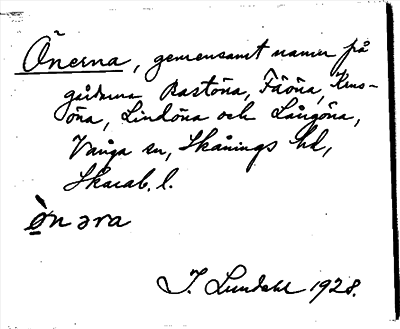 Önerna, gemensamt namn på
gårdarna Rastöna, Fåöna, Krus-
öna, Lindöna och Långöna,
Vånga sn, Skånings hd,
Skarab. l.
ònəra
J. Lundahl 1928.